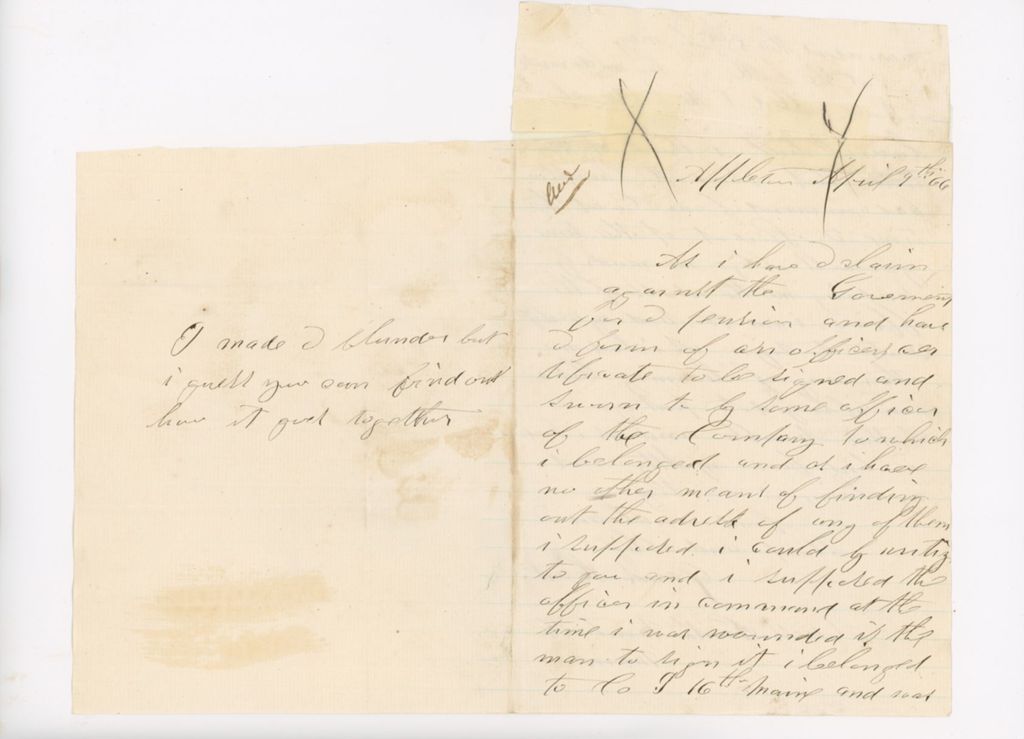 I made a blunder but
i guess you can find out
how it goes together
Ans
Appleton April 9th 66
As i have a claim
against the Goverment
for a pension and have
a form of an officers cer
tificate to be signed and
sworn to by some officer
of the Company to which
i belonged and as i have
no other means of finding
out the adress of any of them
i supposed i could by writing
to you and i supposed the
officer in command at the
time i was wounded is the
man to sign it i belonged
to Co I 16th Maine and was